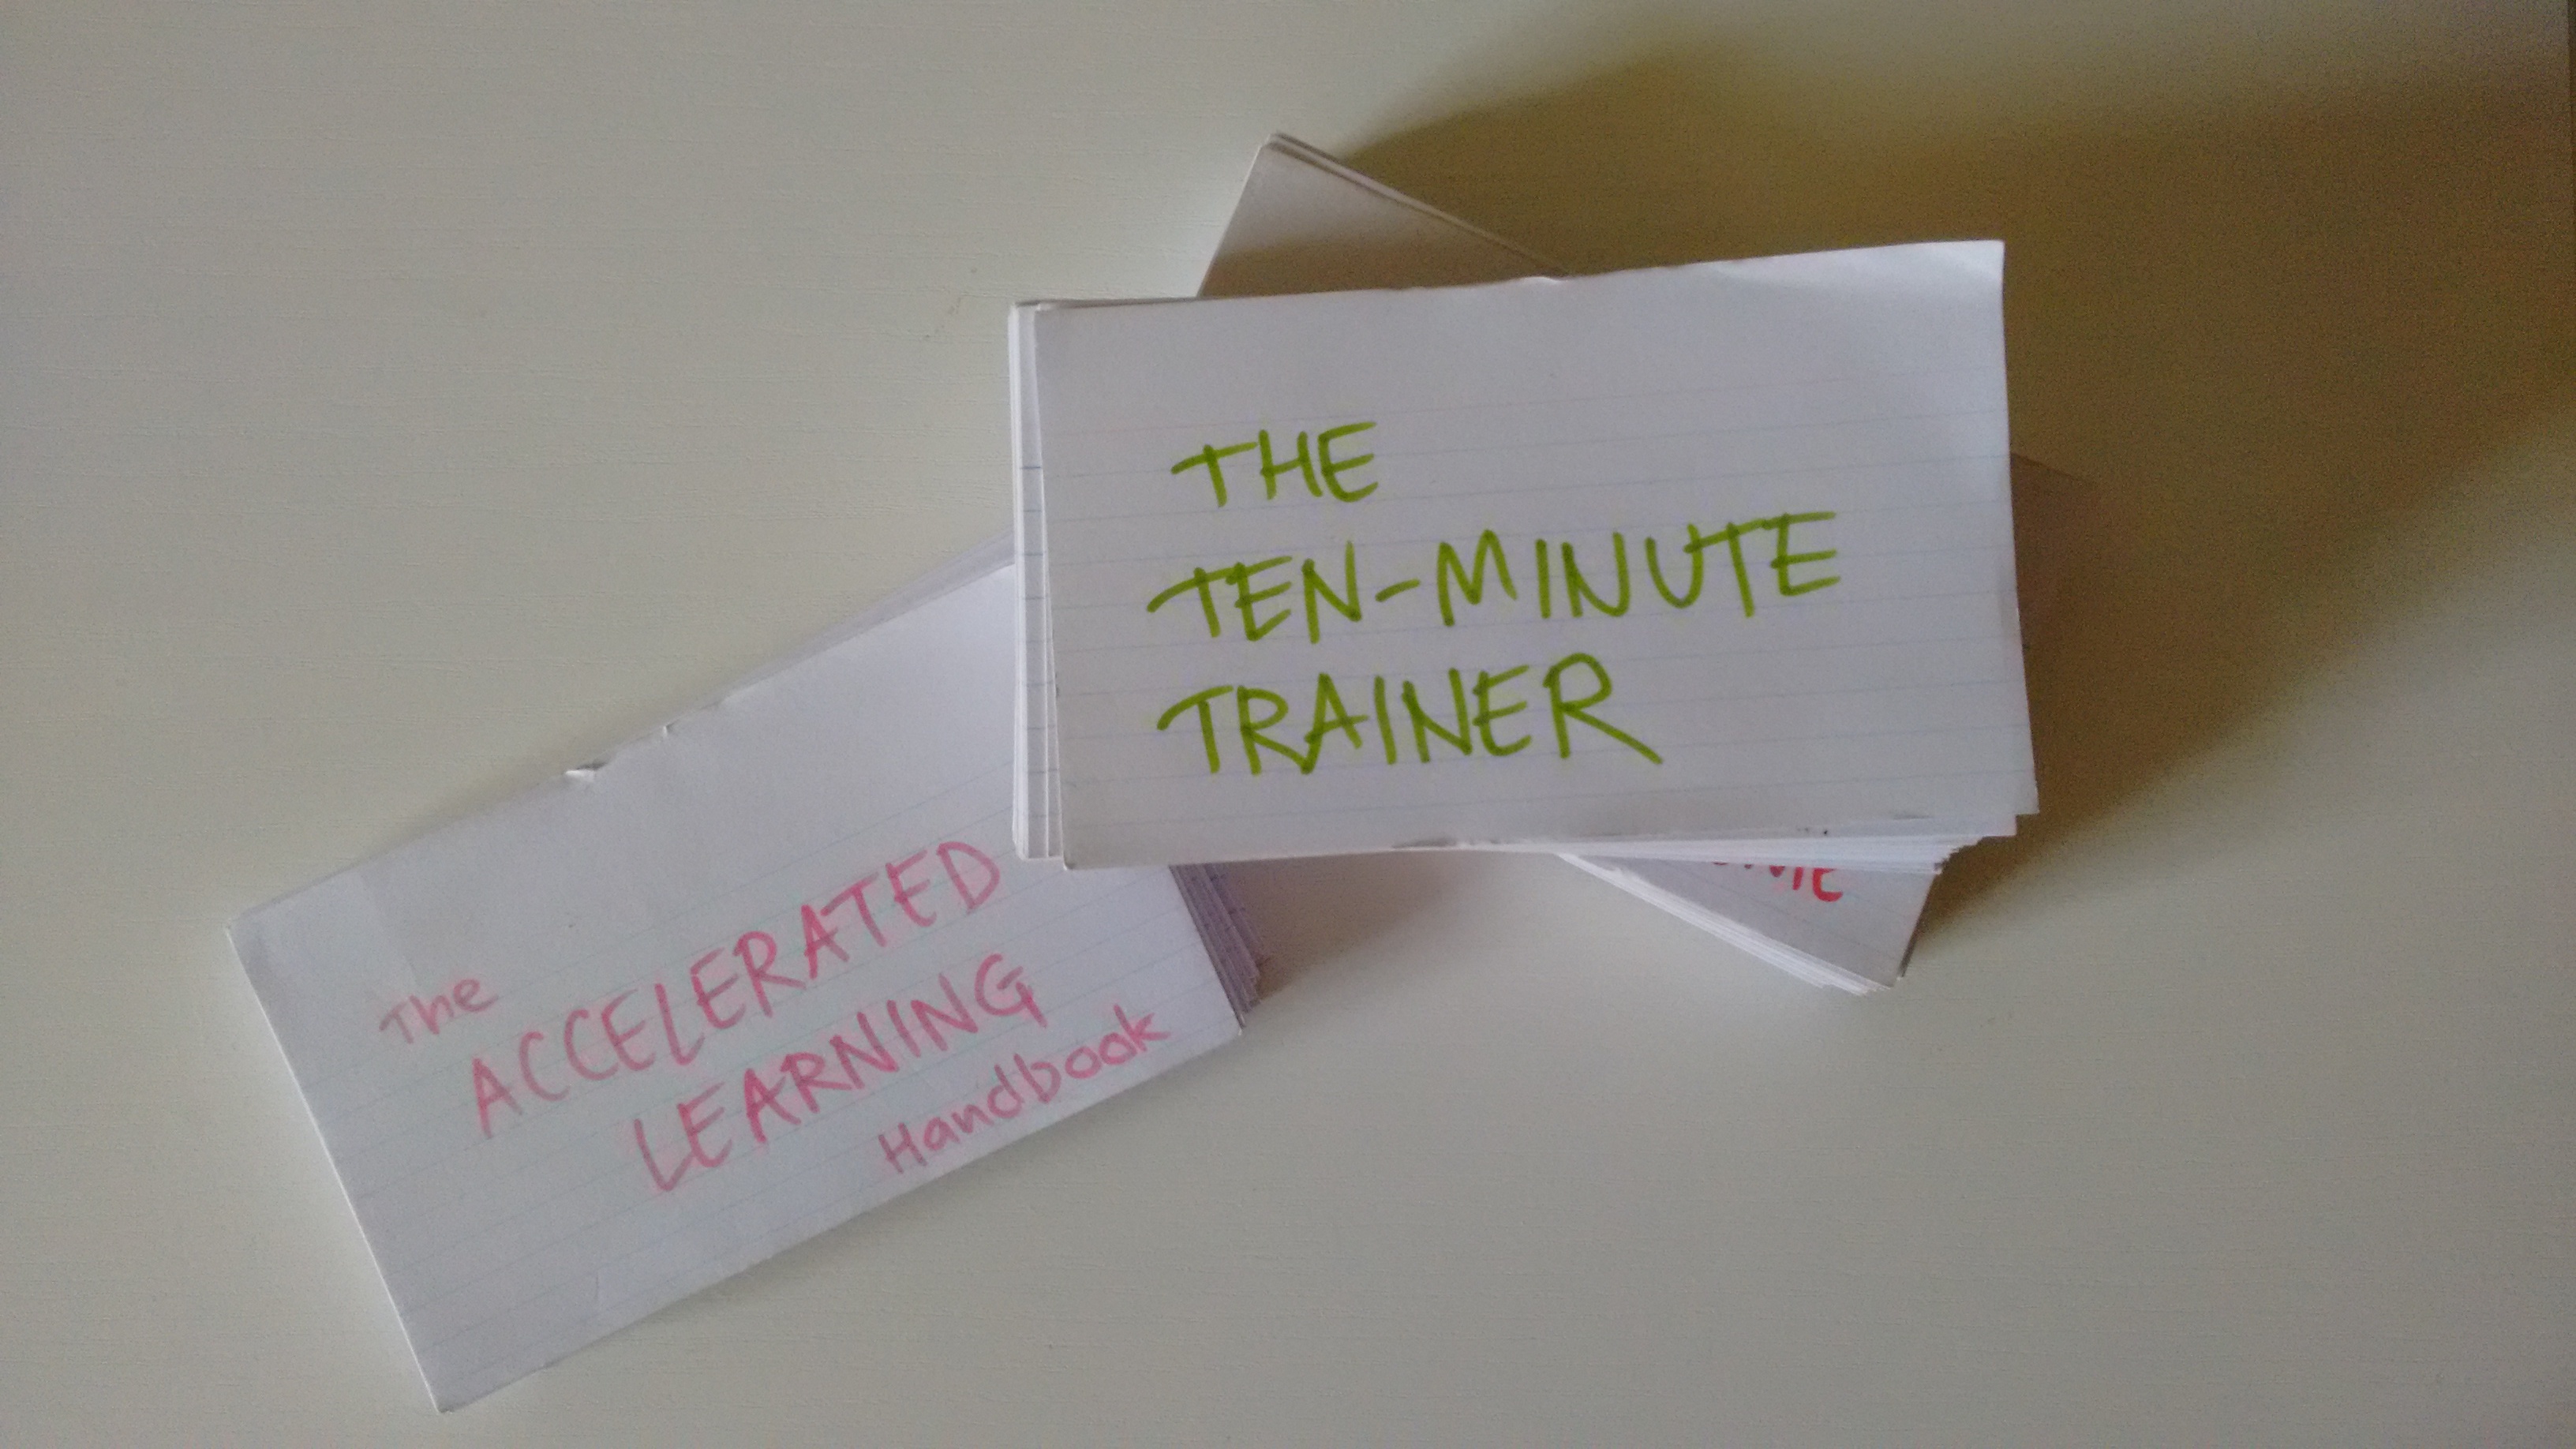 THE
TEN-MINUTE
TRAINER
The
ACCELERATED
LEARNING
Handbook